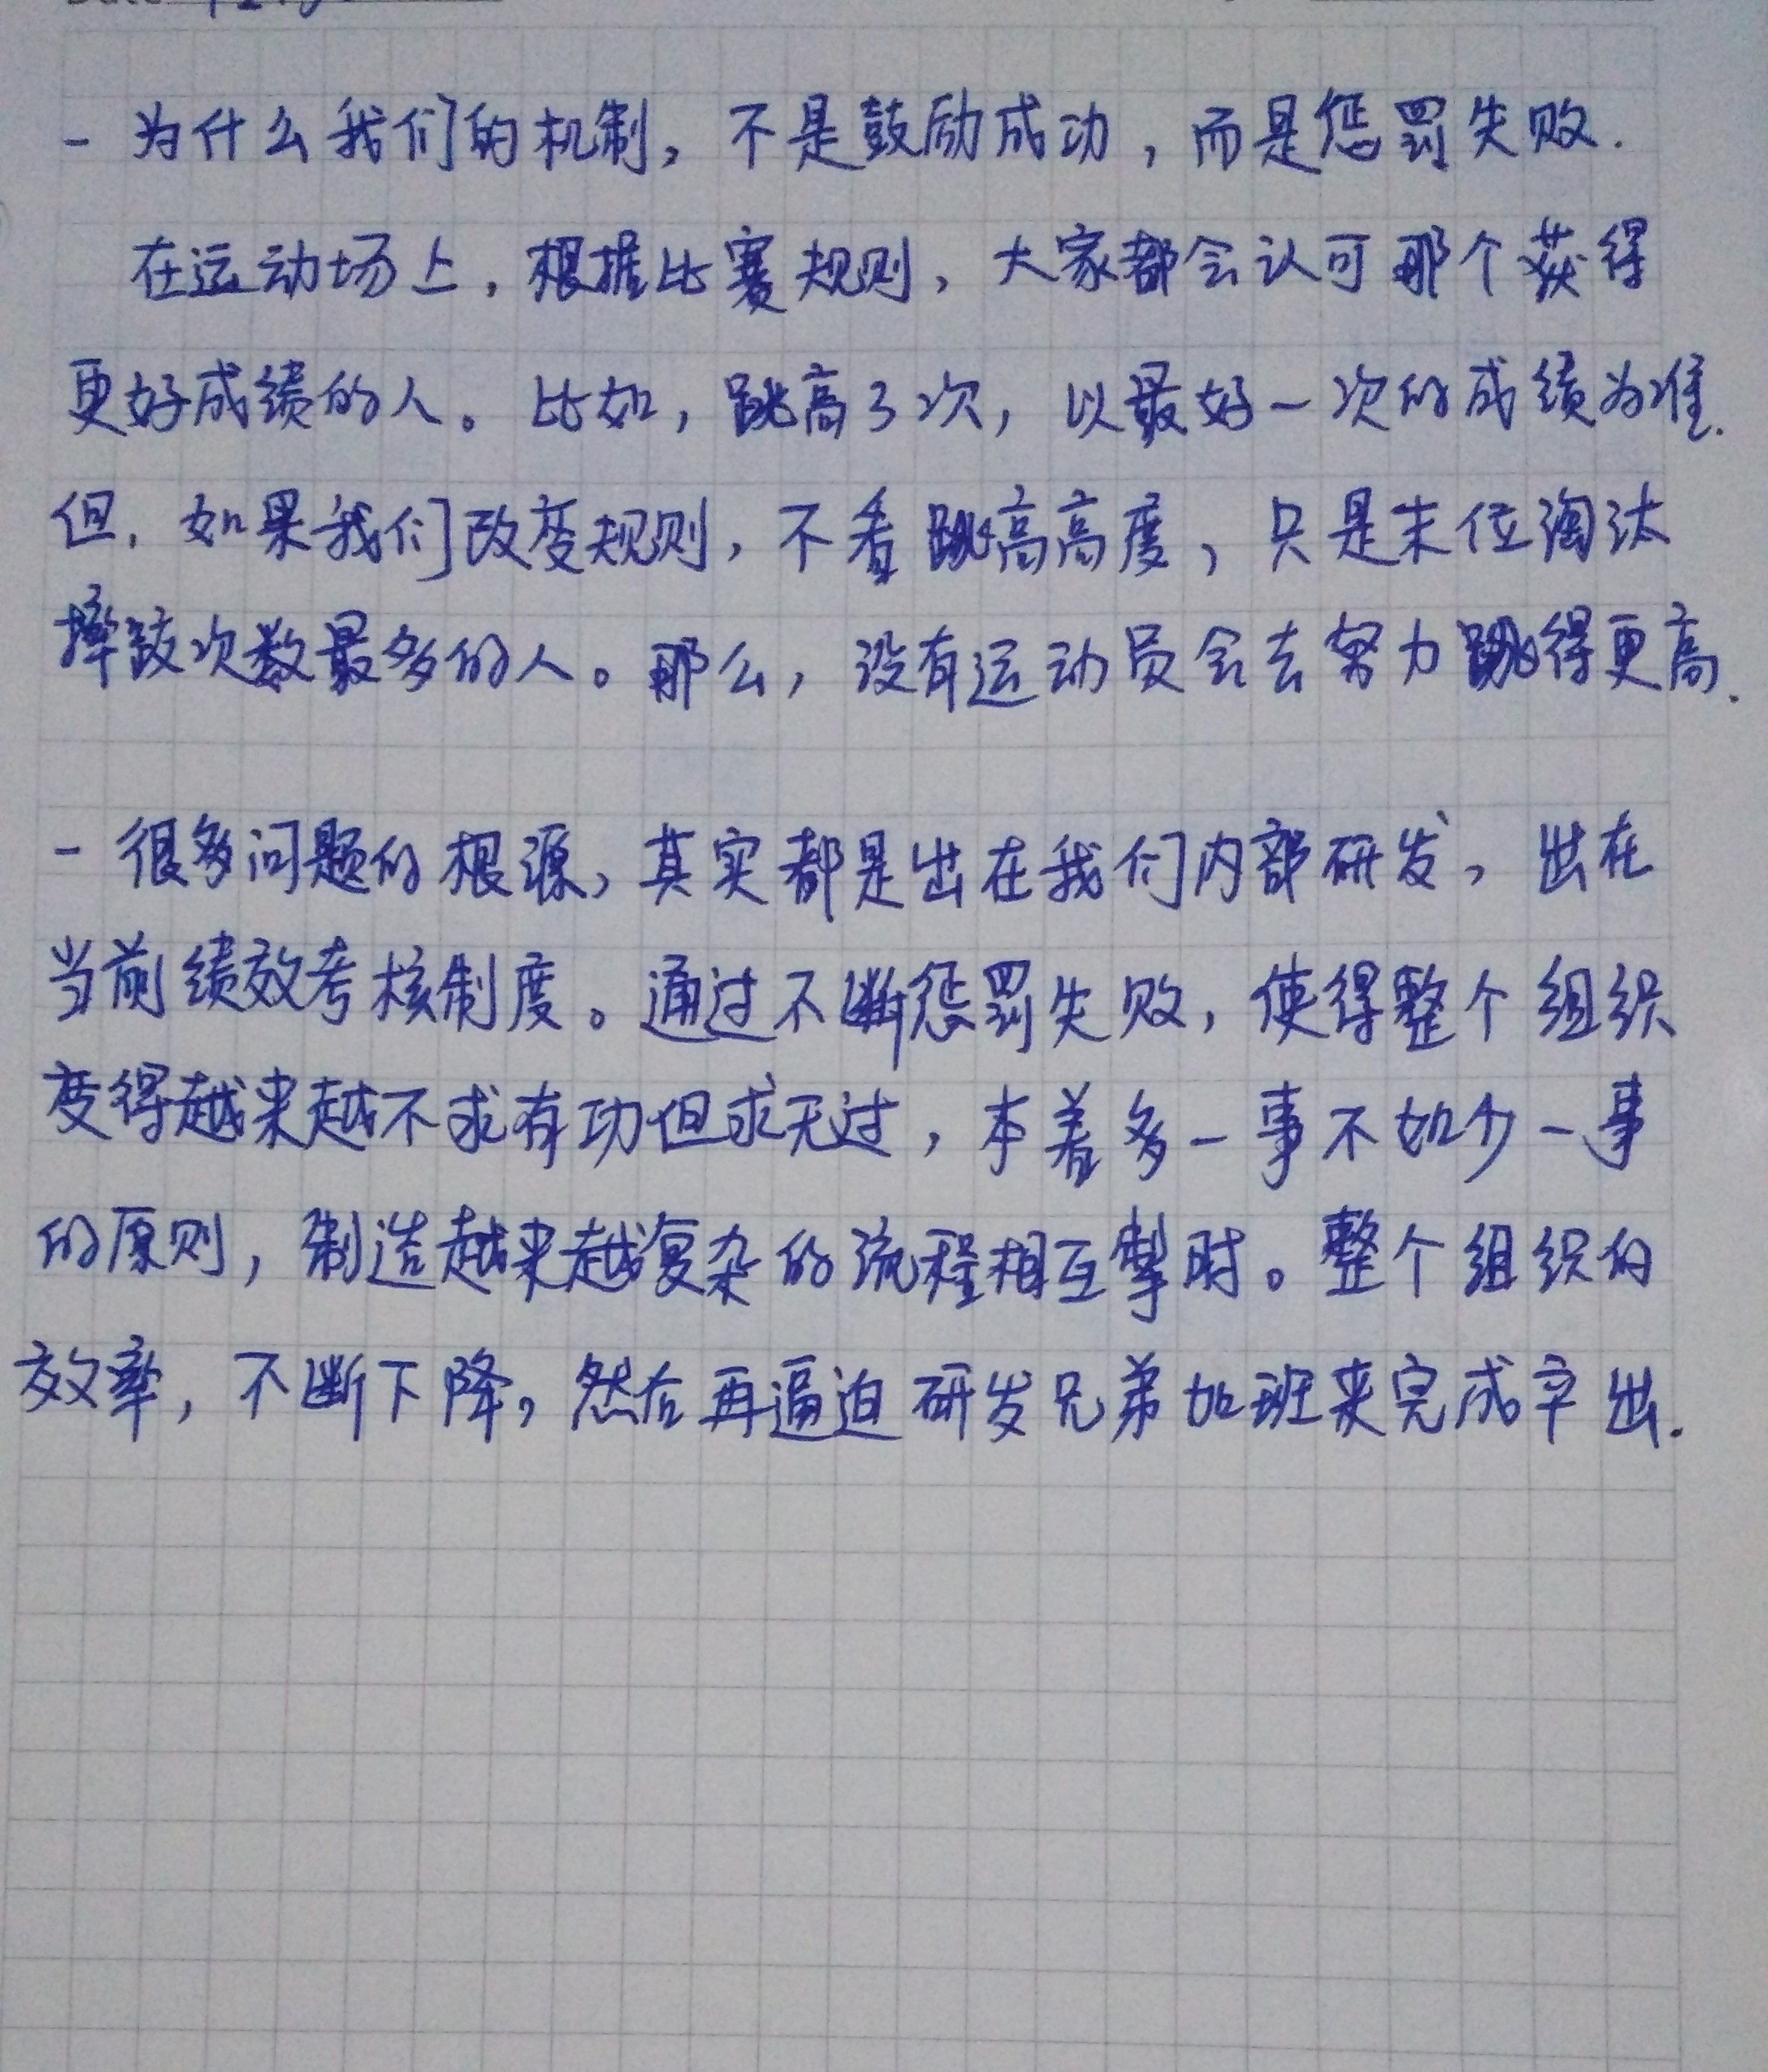 - 为什么我们的机制，不是鼓励成功，而是惩罚失败.
在运动场上，根据比赛规则，大家都会认可那个获得
更好成绩的人。比如，跳高3次，以最好一次的成绩为准.
但，如果我们改变规则，不看跳高高度，只是末位淘汰
摔跤次数最多的人。那么，没有运动员会去努力跳得更高.
- 很多问题的根源，其实都是出在我们内部研发，出在
当前绩效考核制度。通过不断惩罚失败，使得整个组织
变得越来越不求有功但求无过，本着多一事不如少一事
的原则，制造越来越复杂的流程相互掣肘。整个组织的
效率，不断下降，然后再逼迫研发兄弟加班来完成卒出.